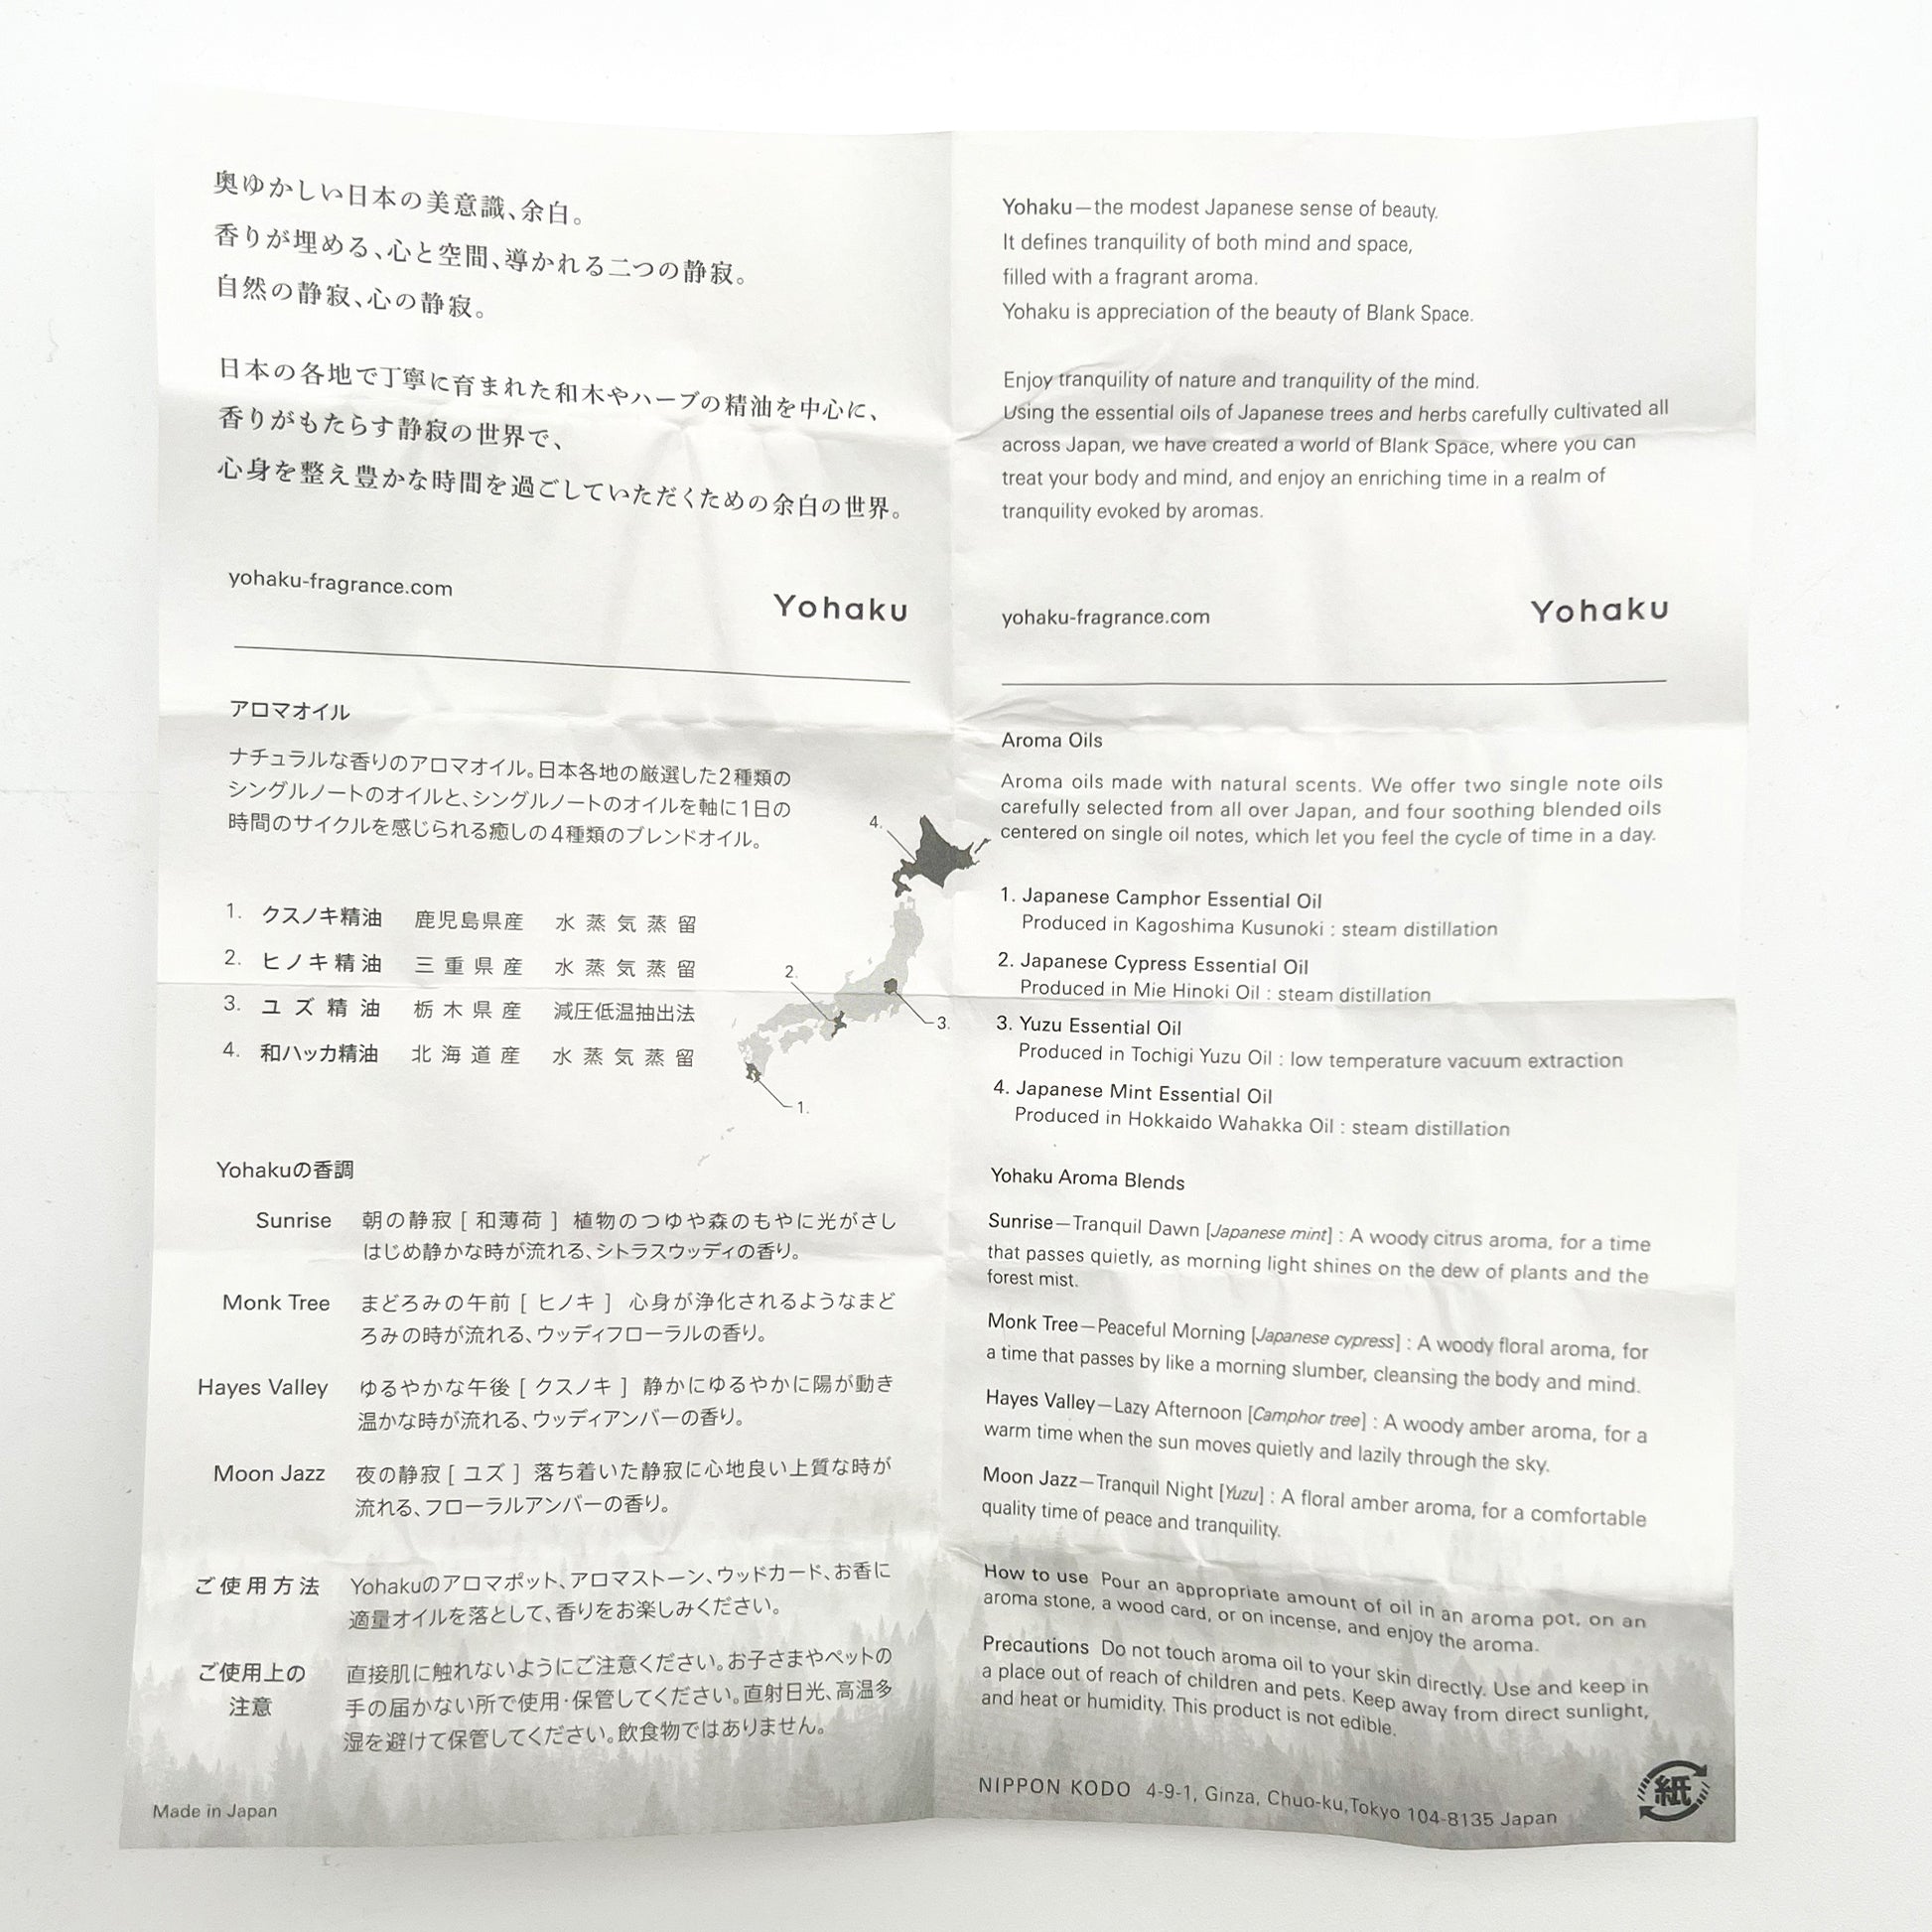 奥ゆかしい日本の美意識、余白。
香りが埋める、心と空間、導かれる二つの静寂。
自然の静寂、心の静寂。
日本の各地で丁寧に育まれた和木やハーブの精油を中心に、
香りがもたらす静寂の世界で、
心身を整え豊かな時間を過ごしていただくための余白の世界。
yohaku-fragrance.com
Yohaku
アロマオイル
ナチュラルな香りのアロマオイル。日本各地の厳選した2種類の
シングルノートのオイルと、シングルノートのオイルを軸に1日の
時間のサイクルを感じられる癒しの4種類のブレンドオイル。
1. クスノキ精油 鹿児島県産 水蒸気蒸留
2. ヒノキ精油 三重県産 水蒸気蒸留
3. ユズ精油 栃木県産 減圧低温抽出法
4. 和ハッカ精油 北海道産 水蒸気蒸留
4.
2.
3.
1.
Yohakuの香調
Sunrise 朝の静寂 [ 和薄荷 ] 植物のつゆや森のもやに光がさし
はじめ静かな時が流れる、シトラスウッディの香り。
Monk Tree まどろみの午前 [ ヒノキ ] 心身が浄化されるようなまど
ろみの時が流れる、ウッディフローラルの香り。
Hayes Valley ゆるやかな午後 [ クスノキ ] 静かにゆるやかに陽が動き
温かな時が流れる、ウッディアンバーの香り。
Moon Jazz 夜の静寂 [ ユズ ] 落ち着いた静寂に心地良い上質な時が
流れる、フローラルアンバーの香り。
ご使用方法 Yohakuのアロマポット、アロマストーン、ウッドカード、お香に
適量オイルを落として、香りをお楽しみください。
ご使用上の
注意
直接肌に触れないようにご注意ください。お子さまやペットの
手の届かない所で使用・保管してください。直射日光、高温多
湿を避けて保管してください。飲食物ではありません。
Made in Japan
Yohaku—the modest Japanese sense of beauty.
It defines tranquility of both mind and space,
filled with a fragrant aroma.
Yohaku is appreciation of the beauty of Blank Space.
Enjoy tranquility of nature and tranquility of the mind.
Using the essential oils of Japanese trees and herbs carefully cultivated all
across Japan, we have created a world of Blank Space, where you can
treat your body and mind, and enjoy an enriching time in a realm of
tranquility evoked by aromas.
yohaku-fragrance.com
Yohaku
Aroma Oils
Aroma oils made with natural scents. We offer two single note oils
carefully selected from all over Japan, and four soothing blended oils
centered on single oil notes, which let you feel the cycle of time in a day.
1. Japanese Camphor Essential Oil
Produced in Kagoshima Kusunoki : steam distillation
2. Japanese Cypress Essential Oil
Produced in Mie Hinoki Oil : steam distillation
3. Yuzu Essential Oil
Produced in Tochigi Yuzu Oil : low temperature vacuum extraction
4. Japanese Mint Essential Oil
Produced in Hokkaido Wahakka Oil : steam distillation
Yohaku Aroma Blends
Sunrise—Tranquil Dawn [Japanese mint] : A woody citrus aroma, for a time
that passes quietly, as morning light shines on the dew of plants and the
forest mist.
Monk Tree—Peaceful Morning [Japanese cypress] : A woody floral aroma, for
a time that passes by like a morning slumber, cleansing the body and mind.
Hayes Valley—Lazy Afternoon [Camphor tree] : A woody amber aroma, for a
warm time when the sun moves quietly and lazily through the sky.
Moon Jazz—Tranquil Night [Yuzu] : A floral amber aroma, for a comfortable
quality time of peace and tranquility.
How to use Pour an appropriate amount of oil in an aroma pot, on an
aroma stone, a wood card, or on incense, and enjoy the aroma.
Precautions Do not touch aroma oil to your skin directly. Use and keep in
a place out of reach of children and pets. Keep away from direct sunlight,
and heat or humidity. This product is not edible.
NIPPON KODO 4-9-1, Ginza, Chuo-ku,Tokyo 104-8135 Japan
紙